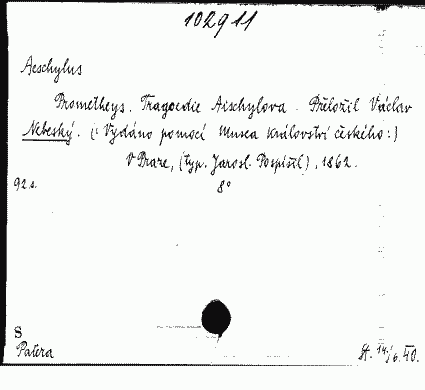 102911
Aeschylus
Prometheys. Tragoedie Aischylova. Přeložil Václav
Nebeský. (: Vydáno pomocí Musea království českého :)
V Praze, (typ. Jarosl. Pospíšil), 1862.
92 s. 8°
S
Patera
St. 14./6. 40.